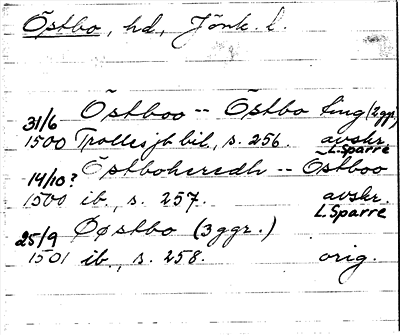 Östbo, hd, Jönk. l.
31/6 Östboo -- Östbo ting (2 ggr)
1500 Trolles jb bil, s. 256. avskr.
L. Sparre
14/10? Östboheredh -- Östboo
1500 ib., s. 257. avskr.
L. Sparre
25/9 Øøstbo (3 ggr.)
1501 ib., s. 258. orig.